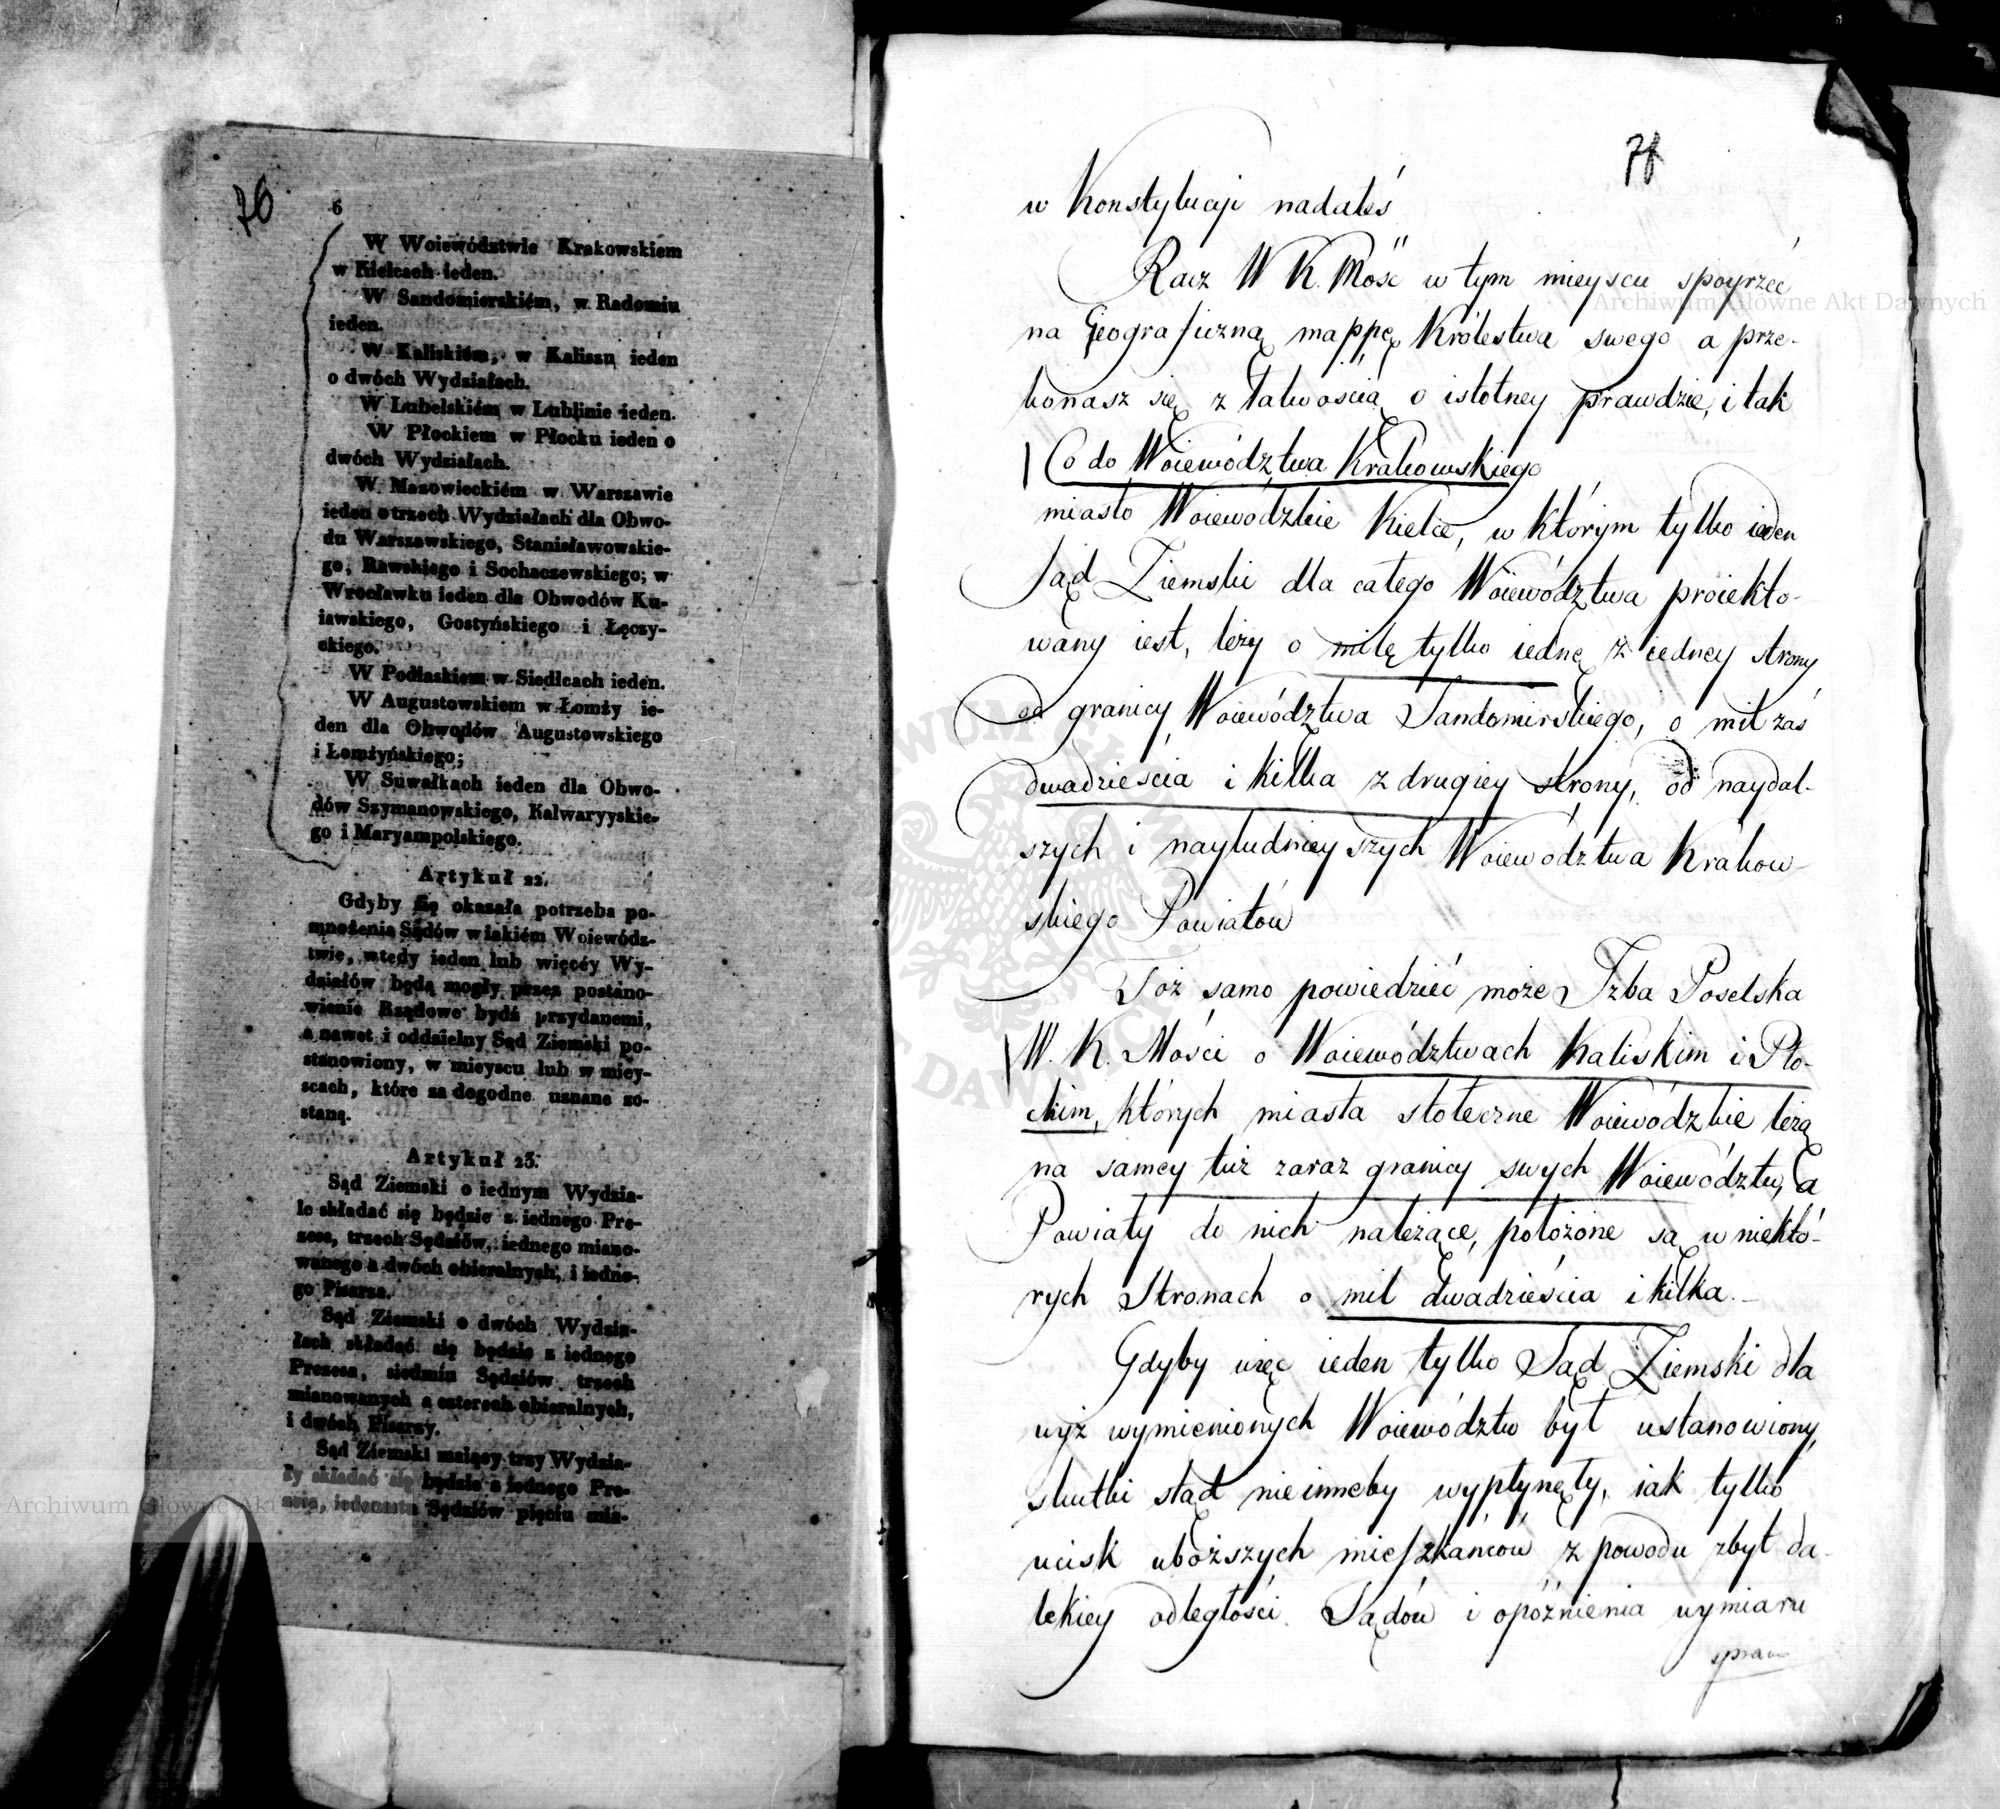 76
6
W Woiewództwie Krakowskiem
w Kielcach ieden.
W Sandomierskiém, w Radomiu
ieden.
W Kaliskiém, w Kaliszu ieden
o dwóch Wydziałach.
W Lubelskiém w Lublinie ieden.
W Płockiem w Płocku ieden o
dwóch Wydziałach.
W Mazowieckiém w Warszawie
ieden o trzech Wydziałach dla Obwo-
du Warszawskiego, Stanisławowskie-
go, Rawskiego i Sochaczewskiego; w
Wrocławku ieden dla Obwodów Ku-
iawskiego, Gostyńskiego i Łęczy-
ckiego.
W Podlaskiem w Siedlcach ieden.
W Augustowskiem w Łomży ie-
den dla Obwodów Augustowskiego
i Łomżyńskiego;
W Suwałkach ieden dla Obwo-
dów Szymanowskiego, Kalwaryyskie-
go i Maryampolskiego.
Artykuł 22.
Gdyby się okazała potrzeba po-
mnożenia Sądów w iakiém Woiewódz-
twie, wtedy ieden lub więcéy Wy-
działów będą mogły przez postano-
wienie Rządowe bydź przydanemi,
a nawet i oddzielny Sąd Ziemski po-
stanowiony, w mieyscu lub w miey-
scach, które za dogodne uznane zo-
staną.
Artykuł 23.
Sąd Ziemski o iednym Wydzia-
le składać się będzie z iednego Pre-
zesa, trzech Sędziów, iednego miano-
wanego a dwóch obieralnych, i iedne-
go Pisarza.
Sąd Ziemski o dwóch Wydzia-
łach składać się będzie z iednego
Prezesa, siedmiu Sędziów trzech
mianowanych a czterech obieralnych,
i dwóch Pisarzy.
Sąd Ziemski maiący trzy Wydzia-
ły składać się będzie z iednego Pre-
zesa, iedenastu Sędziów pięciu mia-
w Konstytucyi nadałeś
Racz W K. Mość w tym mieyscu spoyrzeć
na Geograficzną mappę Królestwa swego a prze-
konasz się z łatwością o istotney prawdzie, i tak
Co do Woiewództwa Krakowskiego
miasto Woiewódzkie Kielce, w którym tylko ieden
Sąd Ziemski dla całego Woiewództwa proiekto-
wany iest, leży o milę tylko iednę z iedney strony
od granicy Woiewództwa Sandomirskiego, o mil zaś
dwadzieścia i kilka z drugiey strony, od naydal-
szych i nayludnieyszych Woiewództwa Krakow-
skiego Powiatów
Toż samo powiedzieć może Izba Poselska
W. K. Mości o Woiewództwach Kaliskim i Pło-
ckim, których miasta stołeczne Woiewódzkie leżą
na samey tuż zaraz granicy swych Woiewództw, a
Powiaty do nich należące, położone są w niektó-
rych Stronach o mil dwadzieścia i kilka.
Gdyby więc ieden tylko Sąd Ziemski dla
wyż wymienionych Woiewództw był ustanowiony,
skutki stąd nieinneby wypłynęły, iak tylko
ucisk uboższych mieszkańców z powodu zbyt da-
lekiey odległości Sądów i opóźnienia wymiaru
Archiwum Główne Akt Dawnych